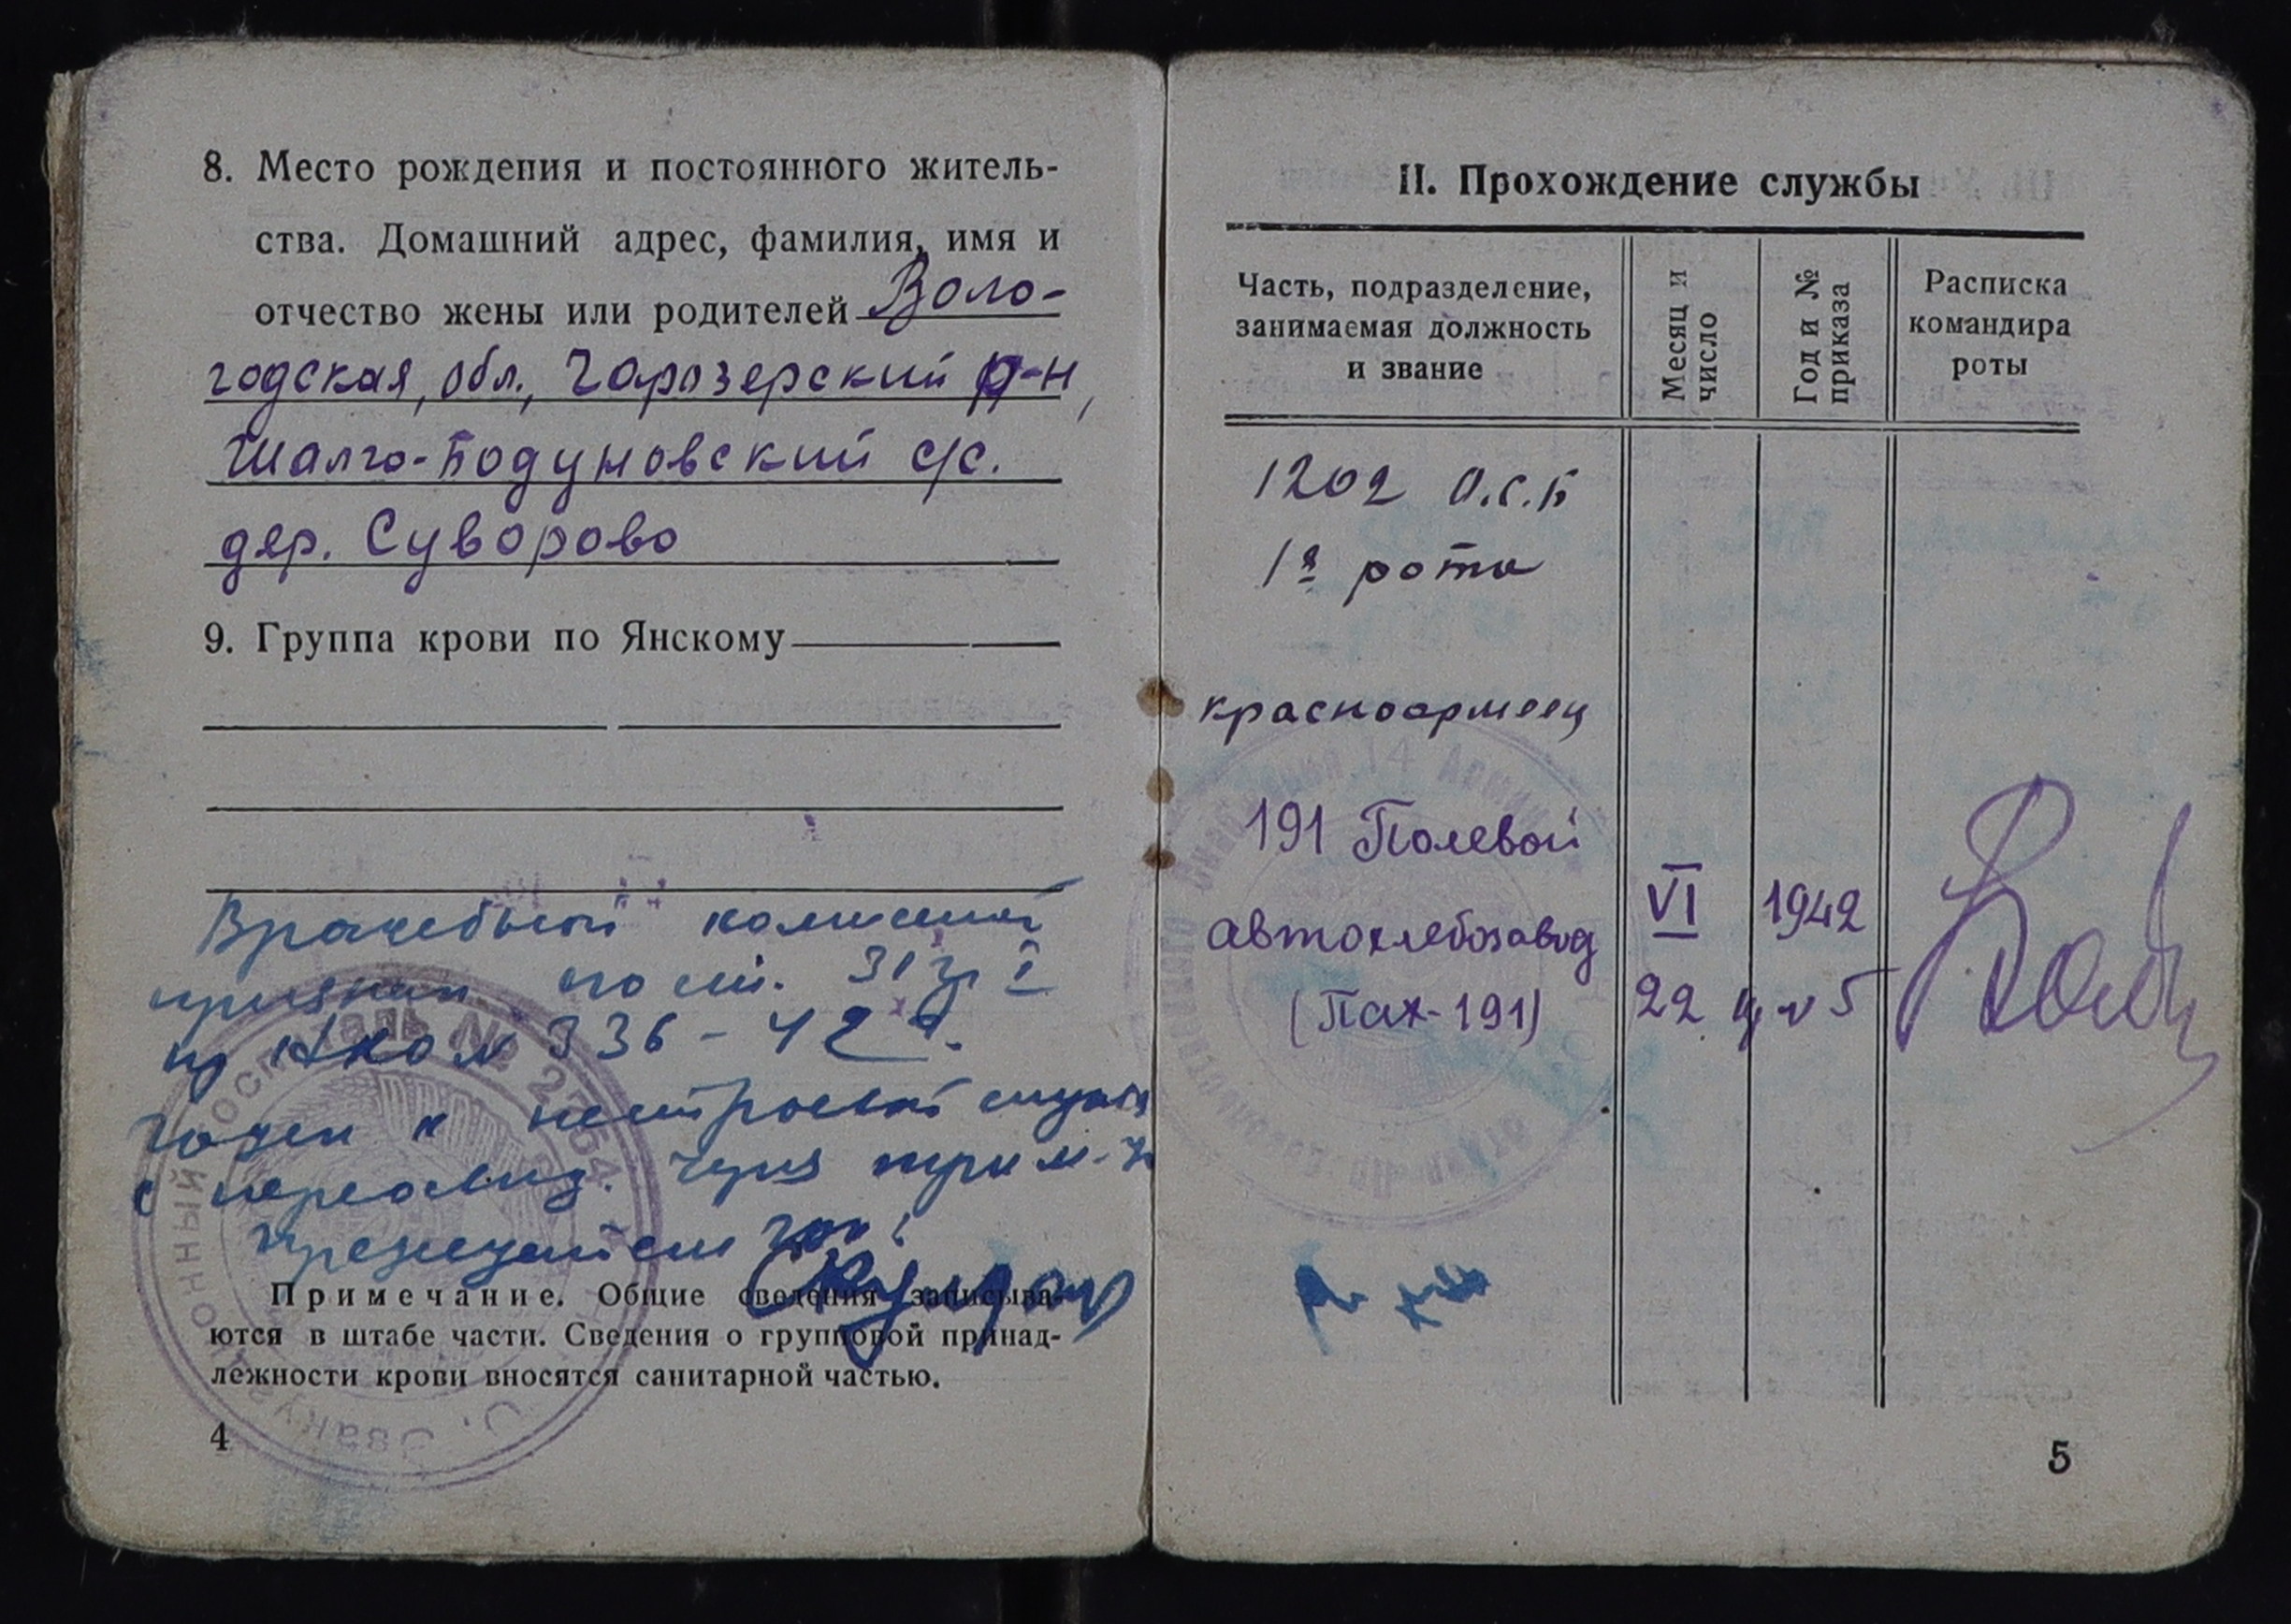 8. Место рождения и постоянного житель-
ства. Домашний адрес, фамилия, имя и
отчество жены или родителей Воло-
годская, обл., Чарозерский р-н,
Шалго-Бодуновский с/с.
дер. Суворово
9. Группа крови по Янскому
Врачебной комиссией
признан по ст. 31 гр I
пр НКО № 336 - 42 г.
годен к нестроевой службе
с переосвид. через три м-ца
Председатель
Примечание. Общие сведения записыва-
ются в штабе части. Сведения о групповой принад-
лежности крови вносятся санитарной частью.
Госпиталь №
4
II. Прохождение службы
Часть, подразделение,
занимаемая должность
и звание
Месяц и
число
Год и №
приказа
Расписка
командира
роты
1202 О.С.Б
1я рота
красноармеец
191 Полевой
автохлебозавод VI 1942
(Пах-191) 22 5
5